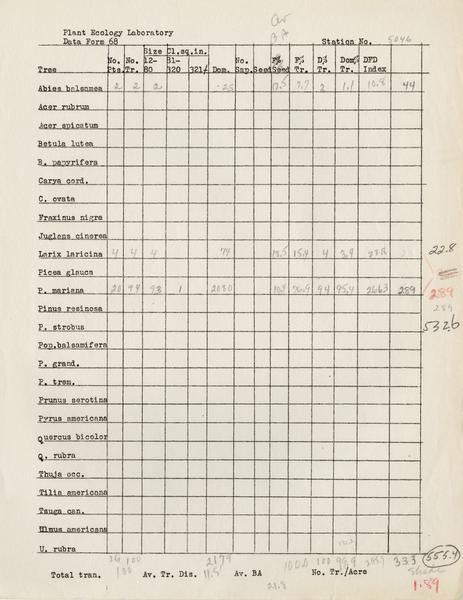 av
BA
Plant Ecology Laboratory
Data Form 68 Station No. 5046
Size Cl.sq.in.
No. No. 12- 81- No. F% P% D% Dom% DFD
Tree Pts. Tr. 80 320 321/ Dom. Sap. Seed Seed Tr. Tr. Tr. Index
Abies balsamea 2 2 2 25 7.7 2 1.1 10.8 44
Acer rubrum
Acer spicatum
Betula lutea
B. papyrifera
Carya cord.
C. ovata
Fraxinus nigra
Juglans cinerea
Larix laricina 4 4 4 74 18.5 15.4 4 3.4 22.8 22.8
Picea glauca
P. mariana 20 94 93 1 2080 76.9 94 95.4 266.3 289 289
289
Pinus resinosa
P. strobus 532.6
Pop. balsamifera
P. grand.
P. trem.
Prunus serotina
Pyrus americana
Quercus bicolor
Q. rubra
Thuja occ.
Tilia americana
Tsuga can.
Ulmus americana
U. rubra
26 100 2179 100 99.9 333 555.4
Total tran. 100 Av. Tr. Dis. 11.5 Av. BA No. Tr./Acre
21.8 1.89